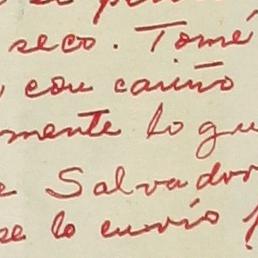 seco. Tomé
con cariño
mente lo qu
e Salvador
se lo envío